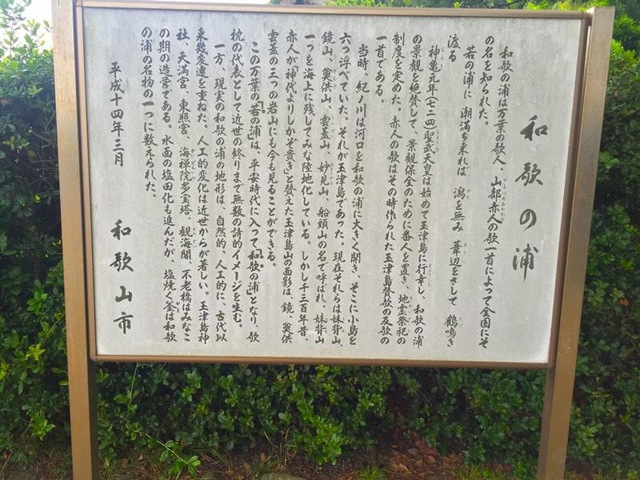 和歌の浦
和歌の浦は万葉の歌人、山部赤人の歌一首によって全国にそ
の名を知られた。
若の浦に 潮満ち来れば 潟を無み 葦辺をさして 鶴鳴き
渡る
神亀元年(七二四)聖武天皇は始めて玉津島に行幸し、和歌の浦
の景観を絶賛して、景観保全のために番人を置き、地霊祭祀の
制度を定めた。赤人の歌はその時作られた玉津島賛歌の反歌の
一首である。
当時、紀ノ川は河口を和歌の浦に大きく開き、そこに小島を
六つ浮べていた。それが玉津島であった。現在それらは妹背山、
鏡山、奠供山、雲蓋山、妙見山、船頭山の名で呼ばれ、妹背山
一つを海上に残してみな陸地化している。しかし千三百年昔、
赤人が神代よりしかぞ貴き」と讃えた玉津島山の面影は、鏡、奠供
雲蓋の三つの岩山にも今も見ることができる。
この万葉の「若の浦」は、平安時代に入って「和歌の浦」となり、歌
枕の代表として近世の終りまで無数の詩的イメージを生む。
一方、現実の和歌の浦の地形は、自然的、人工的に、古代以
来幾変遷を重ねた。人工的変化は近世からが著しい。玉津島神
社、天満宮、東照宮、海禅院多宝塔、観海閣、不老橋はみなこ
の期の造営である。水面の塩田化も進んだが、塩焼く釜は和歌
の浦の名物の一つに数えられた。
平成十四年三月 和歌山市